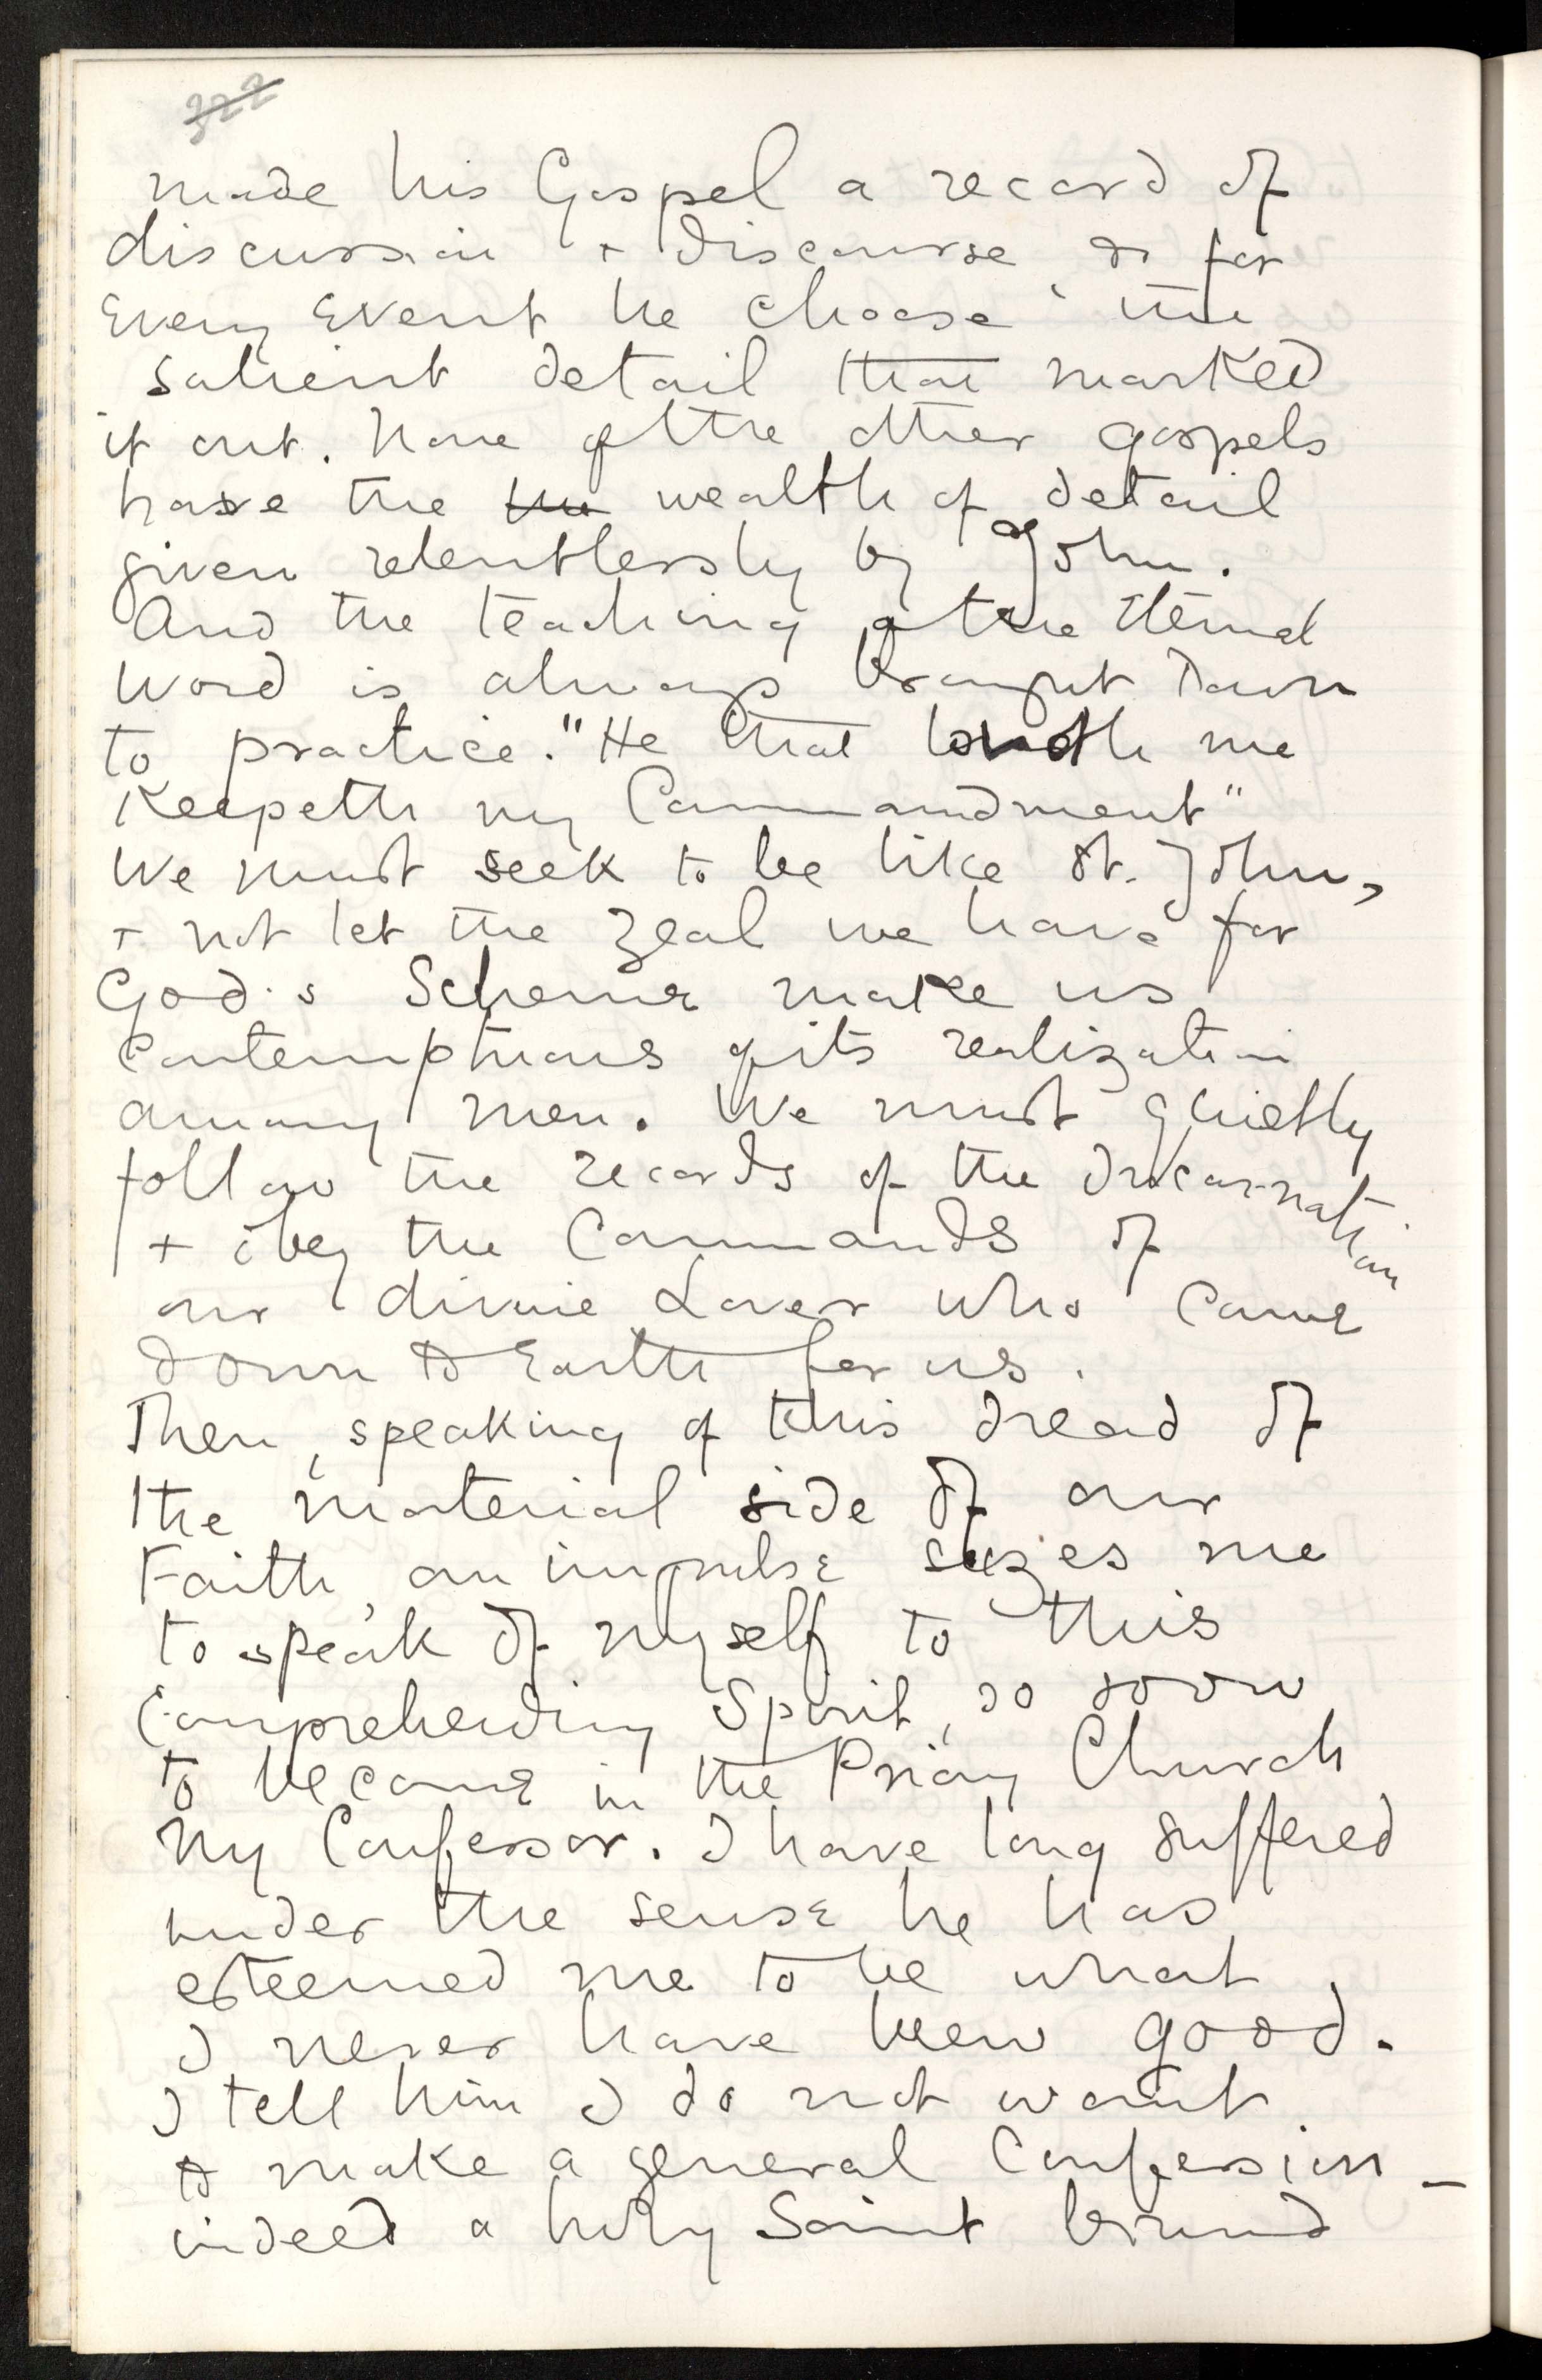 322
made his Gospel a record of
discussion + discourse & for
Every Event he choose the
salient detail that marked
it out. None of the other gospels
have the the wealth of detail
given relentlessly by John.
And the teaching of the Eternal
Word is always brought down
to practice. "He that loveth me
Keepeth my Commandment"
We must seek to be like St. John,
+ not let the zeal we have for
God's Scheme make us
Contemptuous of its realization
among men. We must quietly
follow the records of the Incarnation
+ obey the Commands of
our divine Lover who Came
down to Earth for us.
Then, speaking of this dread of
the material side of our
Faith, an impulse seizes me
to speak of myself to this
Comprehending Spirit, so soon
to become in the Priory Church
my Confessor. I have long suffered
under the sense he has
esteemed me to be what
I never have been good.
I tell him I do not want
to make a general Confession –
indeed a holy Saint